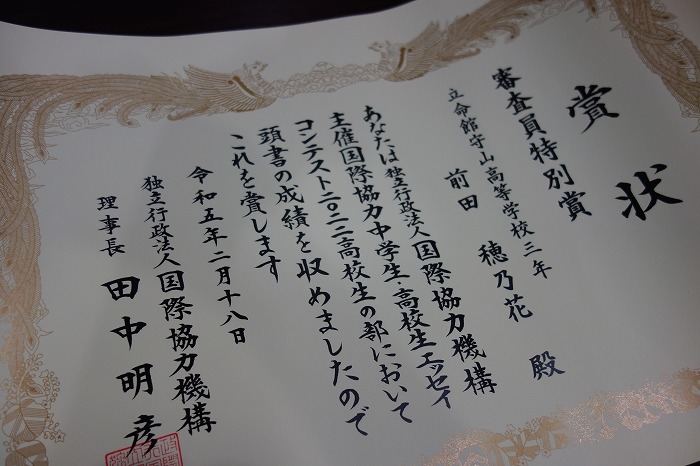 賞状
審査員特別賞
立命館守山高等学校三年
前田 穂乃花 殿
あなたは独立行政法人国際協力機構
主催国際協力中学生・高校生エッセイ
コンテスト二〇二二高校生の部において
頭書の成績を収めましたので
これを賞します
令和五年二月十八日
独立行政法人国際協力機構
理事長 田中明彦